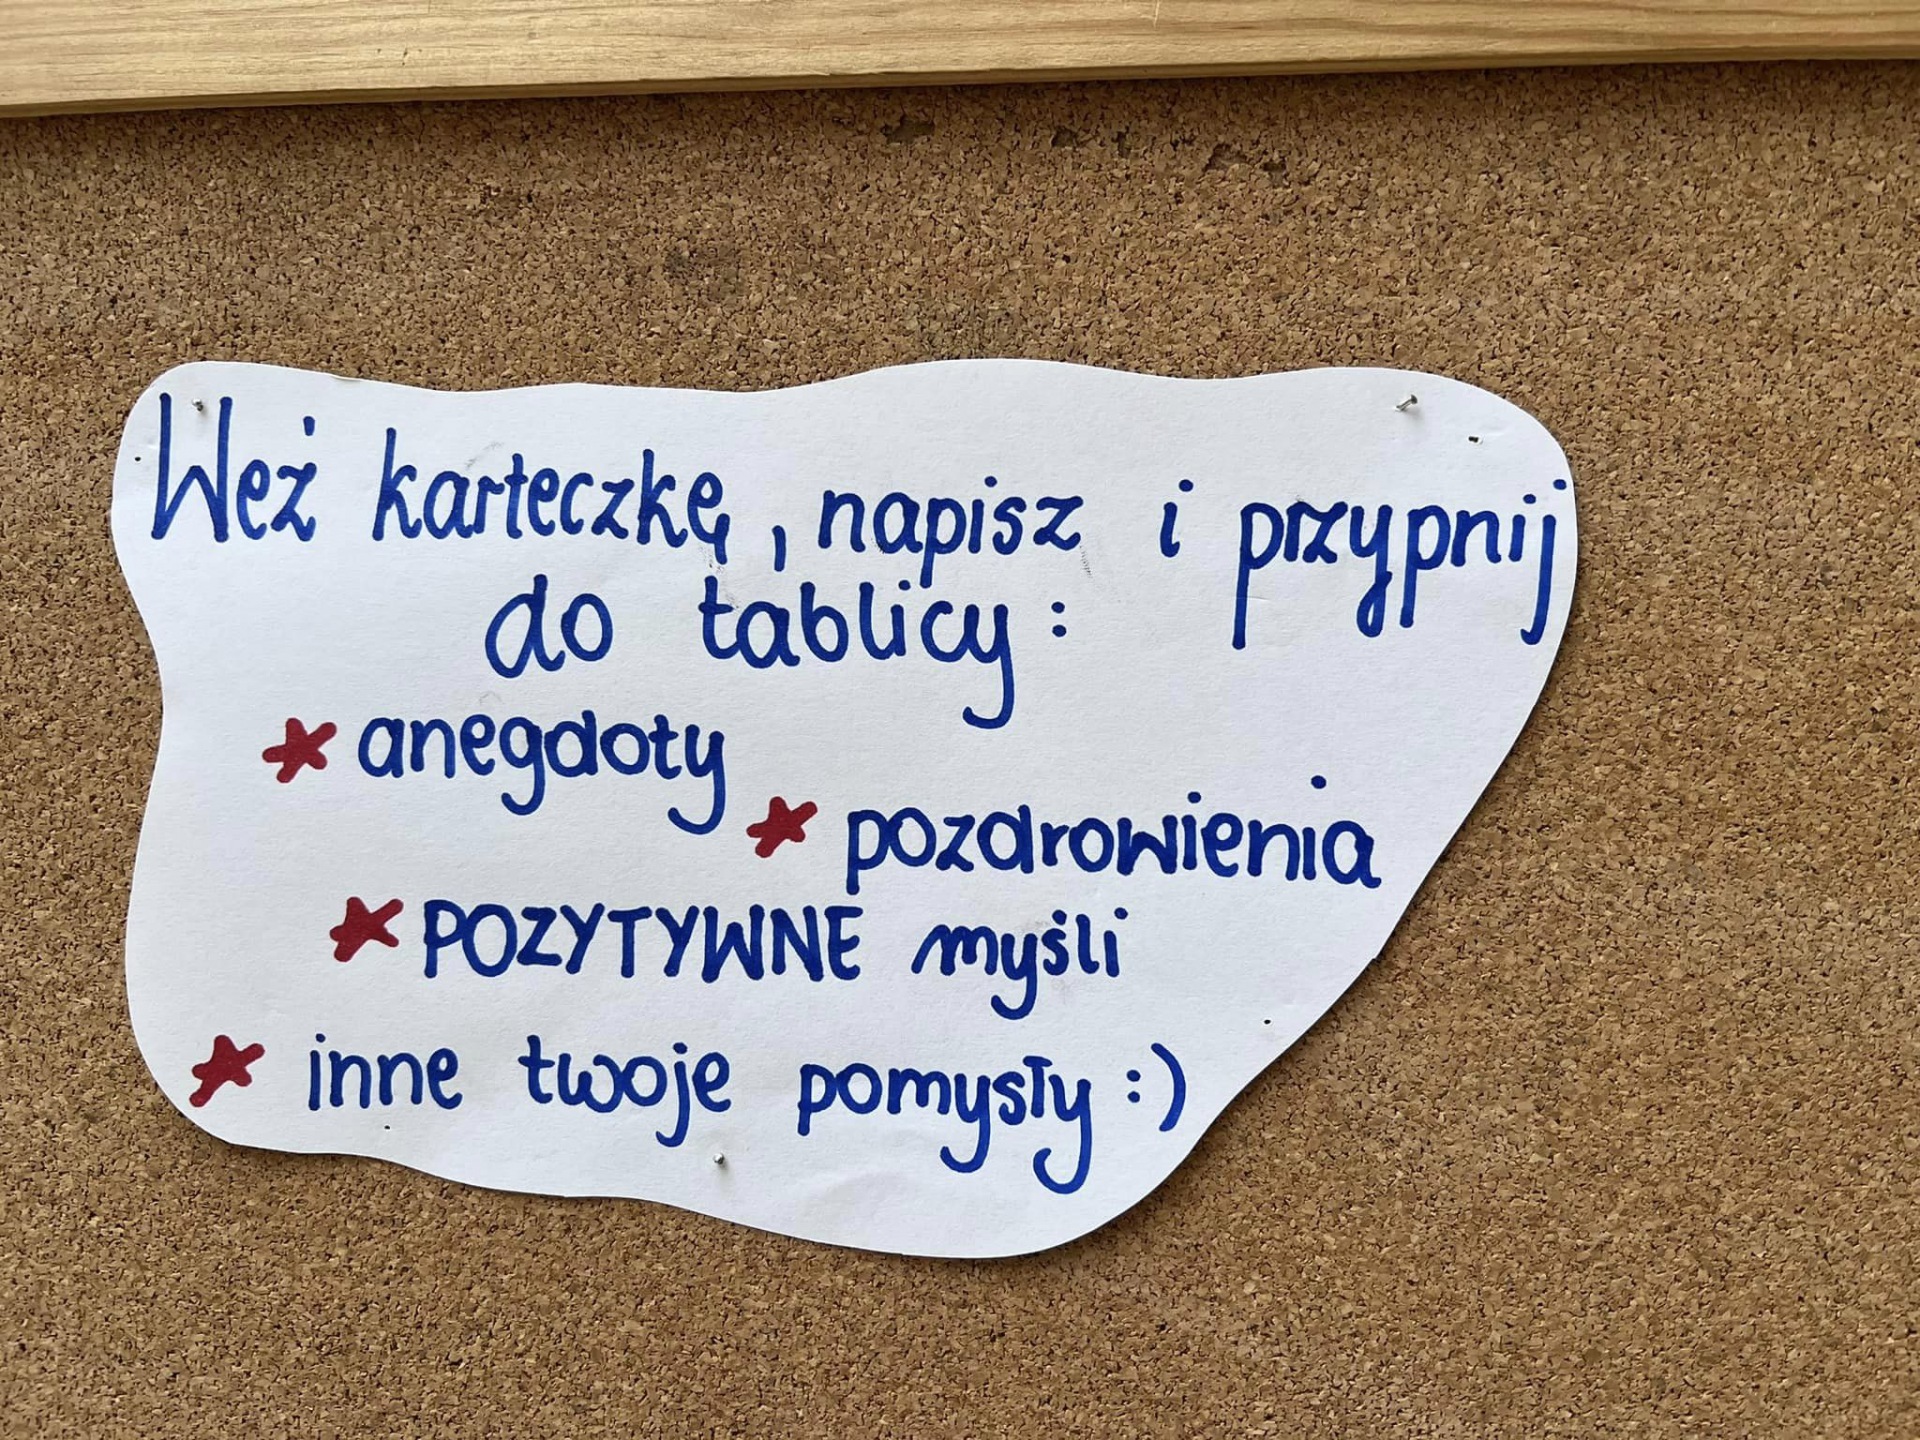 Weź karteczkę, napisz i przypnij
do tablicy:
* anegdoty
* pozdrowienia
* POZYTYWNE myśli
* inne twoje pomysły :)